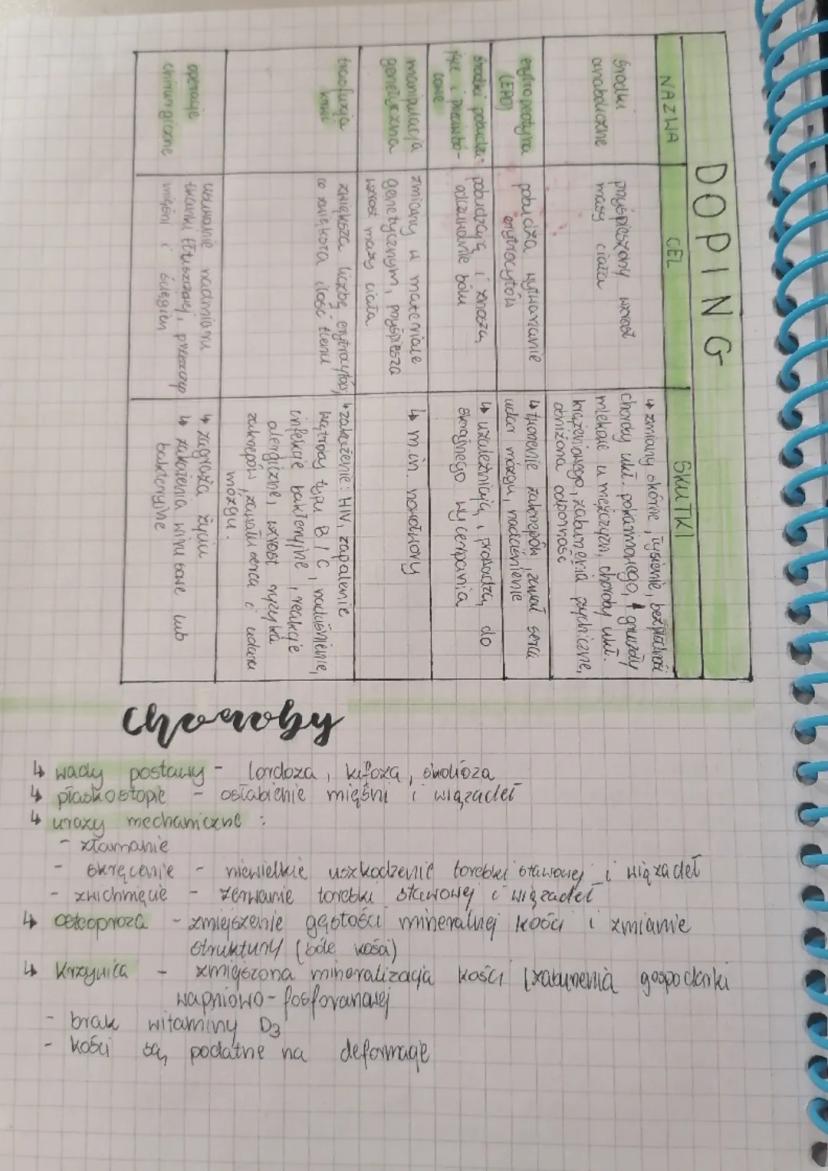 DOPING
NAZWA CEL SKUTKI
środki
anaboliczne
przyśpieszony wzrost
masy ciała
↳ zmiany skórne, łysienie, bezpłodność
choroby ukł. pokarmowego, gruczoły
mlekowe u mężczyzn, choroby ukł.
krążeniowego, zaburzenia psychiczne,
obniżona odporność
erytropoetyna
(EPO)
pobudza wytwarzanie
erytrocytów
↳ tworzenie zakrzepów, zawał serca
udar mózgu, nadciśnienie
środki pobudza-
jące i przeciwbó-
lowe
pobudzają i znoszą
odczuwanie bólu
↳ uzależniają, prowadzą do
skrajnego wyczerpania
manipulacja
genetyczna
zmiany w materiale
genetycznym, przyśpiesza
wzrost masy ciała
↳ m.in. nowotwory
transfuzja
krwi
zwiększa liczbę erytrocytów,
co zwiększa ilość tlenu
↳ zakażenie: HIV, zapalenie
wątroby typu B/C, nadciśnienie,
infekcje bakteryjne, reakcje
alergiczne, wzrost ryzyka
zakrzepów, zawału serca i udaru
mózgu.
operacje
chirurgiczne
usuwanie nadmiaru
tkanki tłuszczowej, przeszczep
mięśni i ścięgien
↳ zagraża życiu
↳ zakażenia wirusowe lub
bakteryjne
choroby
↳ wady postawy - lordoza, kifoza, skolioza
↳ płaskostopie - osłabienie mięśni i wiązadeł
↳ urazy mechaniczne:
- złamanie
- skręcenie - niewielkie uszkodzenie torebki stawowej i wiązadeł
- zwichnięcie - zerwanie torebki stawowej i wiązadeł
↳ osteoproza - zmiejszenie gęstości mineralnej kości i zmianie
struktury (bóle kości)
↳ Krzywica - zmiejszona mineralizacja kości (zaburzenia gospodarki
wapniowo-fosforanowej
- brak witaminy D₃
- kości są podatne na deformacje